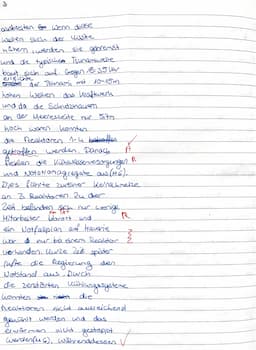 3
ausbreiten. Wenn diese
Wellen sich der Küste
nähern werden sie gebremst
und die typischen Tsunamiwelle
baut sich auf. Gegen 15:35 Uhr
erreichte der Tsunami mit 10-15m
hohen Wellen das Kraftwerk
und da die Schutzmauern
an der Meeresseite nur 5m
hoch waren konnten
die Reaktoren 1-4
getroffen werden. Danach
fielen die Kühlwasserversorgungen R
und Notstromaggregate aus(M6).
Dies führte zu einer Kernschmelze
an 3 Reaktoren. Zu der
Zeit befinden sich nur wenige
Mitarbeiter vor Ort und R
ein Notfallplan auf
war nur bei einem Reaktor
vorhanden. Kurze Zeit später
rufte die Regierung den
Notstand aus. Durch
die zerstörten Kühlungssysteme
konnten die
Reaktoren nicht ausreichend
gekühlt werden und das
erwärmen nicht gestoppt
werden(M6). Währenddessen